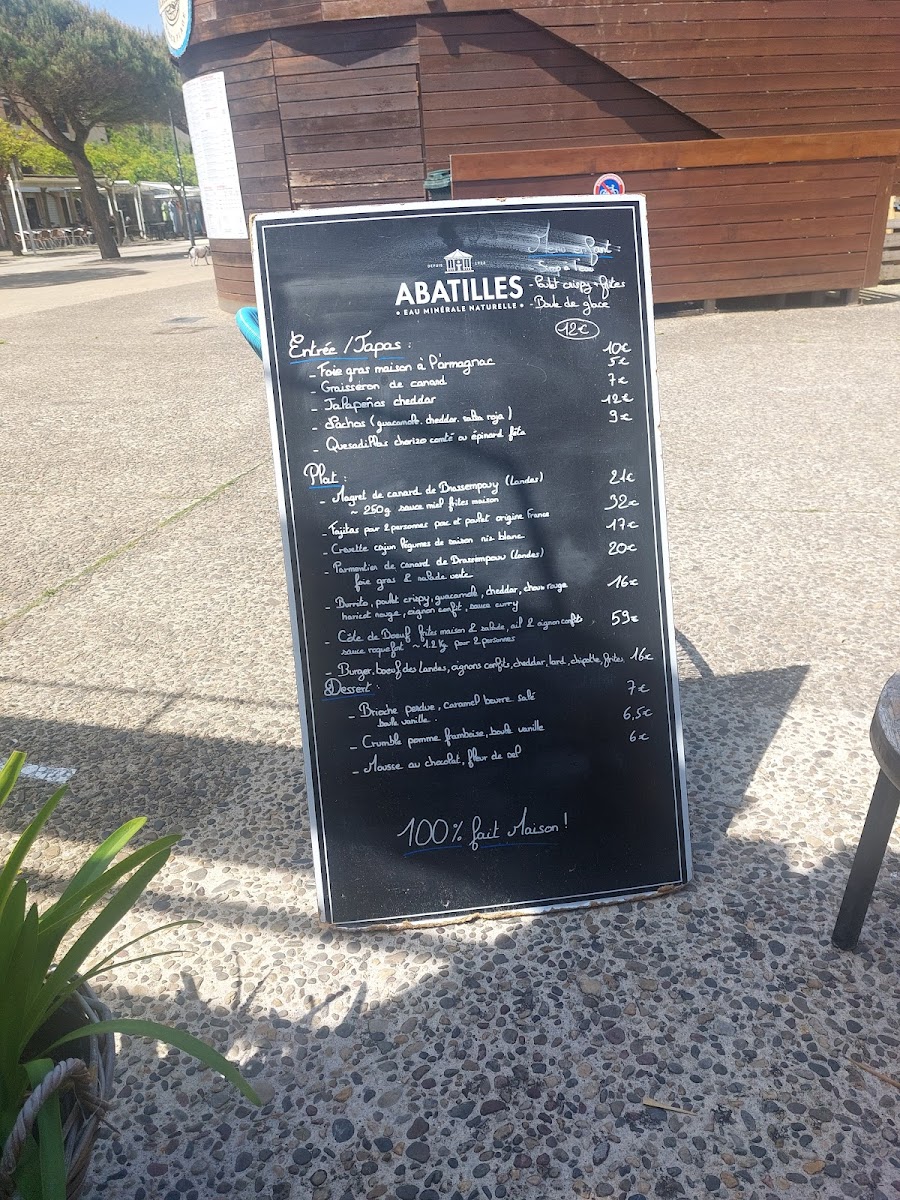 Menu enfant :
- Poulet crispy + frites
- Boule de glace
12€
DEPUIS 1925
ABATILLES
• EAU MINÉRALE NATURELLE •
Entrée / Tapas :
- Foie gras maison à l'armagnac 10€
- Graisseron de canard 5€
- Jalapeños cheddar 7€
- Nachos (guacamole, cheddar, salsa roja) 12€
- Quesadillas chorizo comté ou épinard féta 9€
Plat :
- Magret de canard de Brassempouy (Landes) 21€
~ 250g sauce miel frites maison
- Fajitas pour 2 personnes porc et poulet origine France 32€
- Crevette cajun légumes de saison riz blanc 17€
- Parmentier de canard de Brassempouy (Landes) 20€
foie gras & salade verte
- Burrito, poulet crispy, guacamole, cheddar, choux rouge 16€
haricot rouge, oignon confit, sauce curry
- Côte de Boeuf frites maison & salade, ail & oignon confit 59€
sauce roquefort ~ 1.2 Kg pour 2 personnes
- Burger, boeuf des Landes, oignons confits, cheddar, lard, chipotle, frites 16€
Dessert :
- Brioche perdue, caramel beurre salé 7€
boule vanille.
- Crumble pomme framboise, boule vanille 6,5€
- Mousse au chocolat, fleur de sel 6€
100% fait Maison !